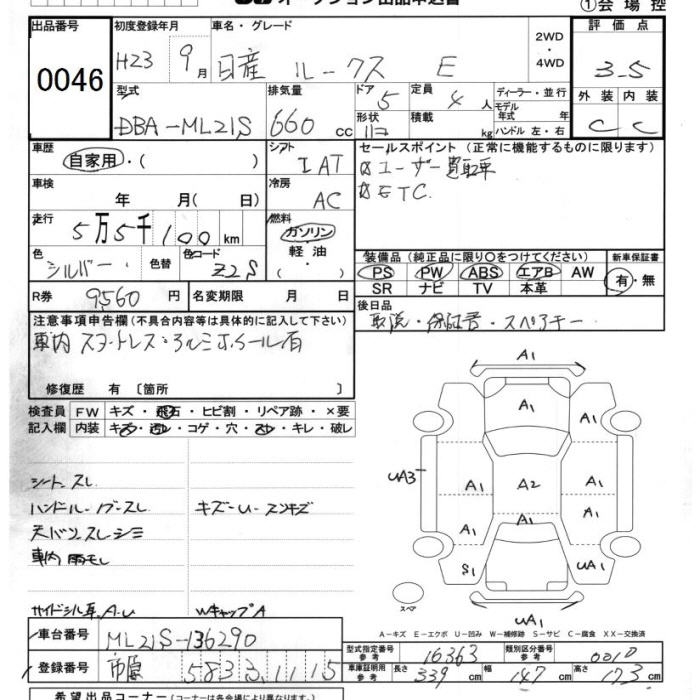 オークション出品申込書
①会場控
出品番号
0046
初度登録年月
H23 9月
車名・グレード
日産 ルークス E
2WD
・
4WD
評価点
3.5
外装 内装
C C
型式
DBA-ML21S
排気量
660 cc
ドア
5
形状
定員
4人
積載
kg
ディーラー・並行
モデル
年式 年
ハンドル 左・右
車歴
自家用・( )
シフト
IAT
冷房
AC
車検
年 月( 日)
走行
5万5千100km
燃料
ガソリン
・
軽油
・
( )
色
シルバー
色替
色コード
Z2S
R券 9560円
名変期限 月 日
セールスポイント(正常に機能するものに限ります)
ユーザー買取車
ETC.
装備品(純正品に限り○をつけてください)
新車保証書
PS PW ABS エアB AW
SR ナビ TV 本革
有・無
後日品
取説・保証書・スペアキー
注意事項申告欄(不具合内容等は具体的に記入して下さい)
車内 スタッドレス・アルミホイール有
修復歴 有 〔箇所 〕
検査員
記入欄
FW キズ・飛石・ヒビ割・リペア跡・×要
内装 キズ・汚レ・コゲ・穴・スレ・キレ・破レ
シートスレ
ハンドル・ノブ・スレ
キズ-U-スンキズ
天バリスレシミ
車内雨モレ
サイドシル車A.U
WキャップA
A1
A1
A1
UA3
A1
A2
A1
A1
A1
A1
S1
UA1
UA1
スペア
A-キズ E-エクボ U-凹み W-補修跡 S-サビ C-腐食 XX-交換済
車台番号
ML21S-136290
登録番号
583 3 11 15
型式指定番号
参考
16363
類別区分番号
参考
0010
車庫証明用
参考
長さ 339cm
幅 147cm
高さ 173cm
希望出品コーナー(コーナーは各会場により異なります)